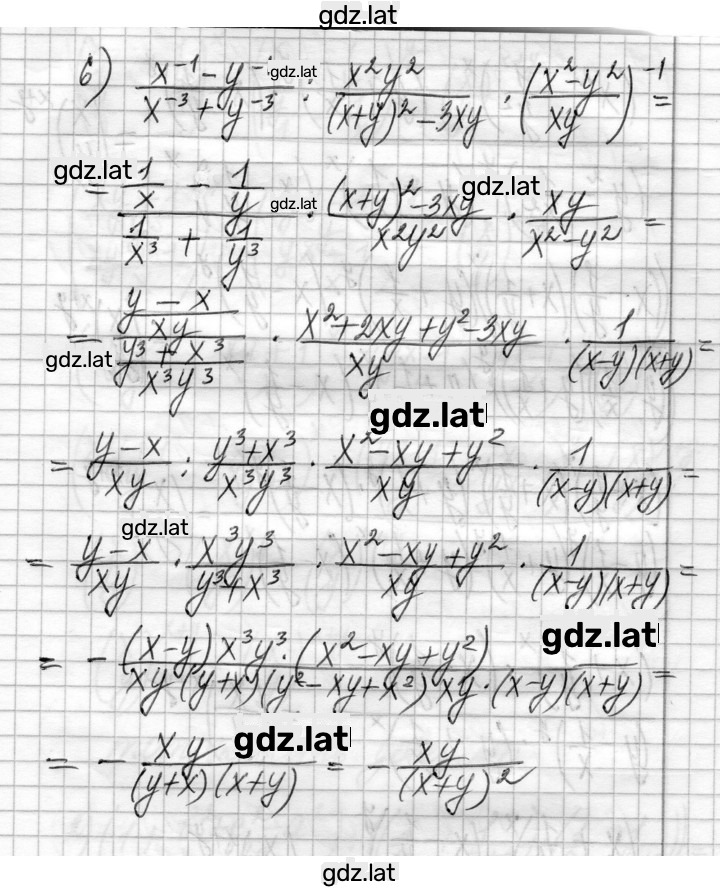 gdz.lat
б) (x⁻¹ - y⁻¹)/(x⁻³ + y⁻³) : x²y²/((x+y)² - 3xy) · ((x² - y²)/xy)⁻¹ =
gdz.lat
gdz.lat gdz.lat
= (1/x - 1/y)/(1/x³ + 1/y³) · ((x+y)² - 3xy)/x²y² · xy/(x² - y²) =
gdz.lat
= ((y - x)/xy)/((y³ + x³)/x³y³) · (x² + 2xy + y² - 3xy)/xy · 1/((x-y)(x+y)) =
gdz.lat
gdz.lat
= (y - x)/xy : (y³ + x³)/x³y³ · (x² - xy + y²)/xy · 1/((x-y)(x+y)) =
gdz.lat
= (y - x)/xy · x³y³/(y³ + x³) · (x² - xy + y²)/xy · 1/((x-y)(x+y)) =
gdz.lat
= - ((x-y)x³y³·(x² - xy + y²))/(xy(y+x)(y² - xy + x²) xy·(x-y)(x+y)) =
gdz.lat
= - xy/((y+x)(x+y)) = - xy/(x+y)²
gdz.lat